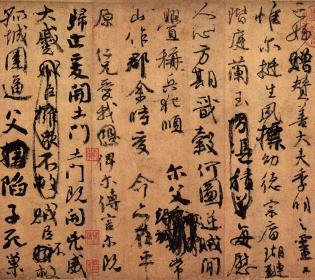 亡姪贈贊善大夫季明之
惟爾挺生夙標幼德宗廟瑚璉
階庭蘭玉方憑積善每慰
人心方期戩穀何圖逆賊間
釁稱兵犯順爾父竭誠常
山作郡余時受命亦在平
原仁兄愛我俾爾傳言爾既
歸止爰開土門土門既開凶威
大蹙賊臣擁衆不救賊臣不救
孤城圍逼父陷子死巢